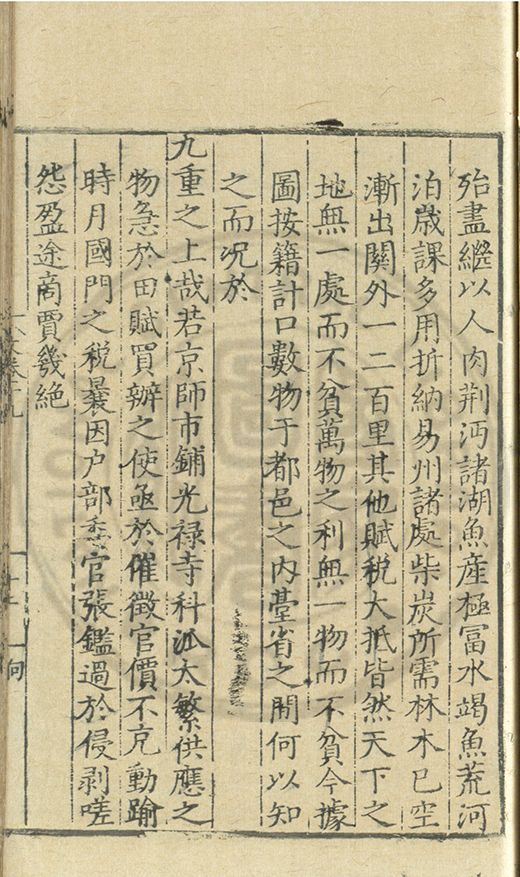 殆盡繼以人肉荆沔諸湖魚產極富水竭魚荒河
泊歲課多用折納易州諸處柴炭所需林木已空
漸出關外一二百里其他賦税大抵皆然天下之
地無一處而不貧萬物之利無一物而不貧今據
圖按籍計口數物于都邑之内臺省之間何以知
之而况於
九重之上哉若京師市鋪光禄寺科派太繁供應之
物急於田賦買辦之使亟於催徵官價不充動踰
時月國門之税曩因户部委官張鑑過於侵剥嗟
怨盈途商賈幾絶